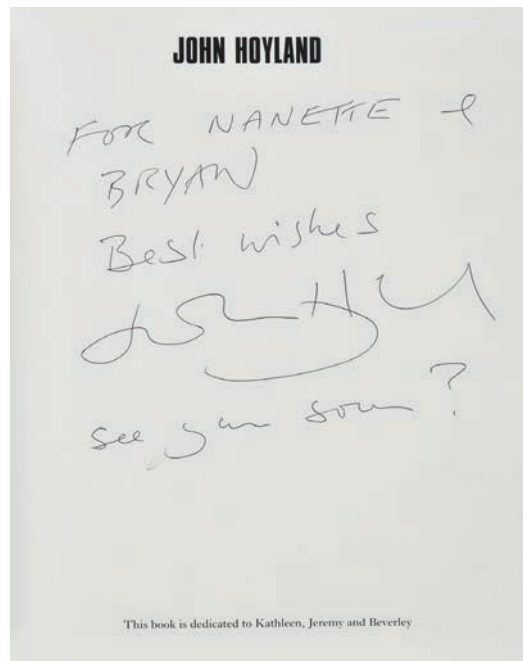 JOHN HOYLAND
FOR NANETTE &
BRYAN
Best wishes
John Hoyland
see you soon ?
This book is dedicated to Kathleen, Jeremy and Beverley